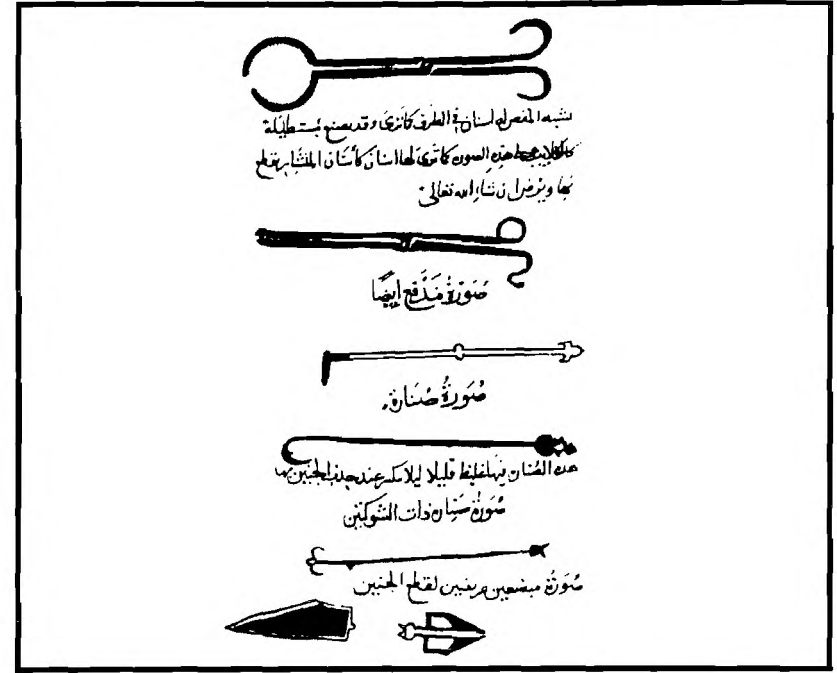 يشبه المقص له اسنان في الطرف كما ترى وقد يصنع مستطيلة
كالكلاليب على هذه الصوره كما ترى لها اسنان كأسنان المنشار يقطع
بها ويرض ان شاء الله تعالى
صُورَةُ مَدْفَعٍ ايضًا
صُورَةُ صنارة
هذه الصنارة فيها غلظ قليلا ليلا تنكسر عند جذب الجنين بها
صُورَةُ صنارة ذات الشوكتين
صُورَةُ مبضعين عريضين لقطع الجنين